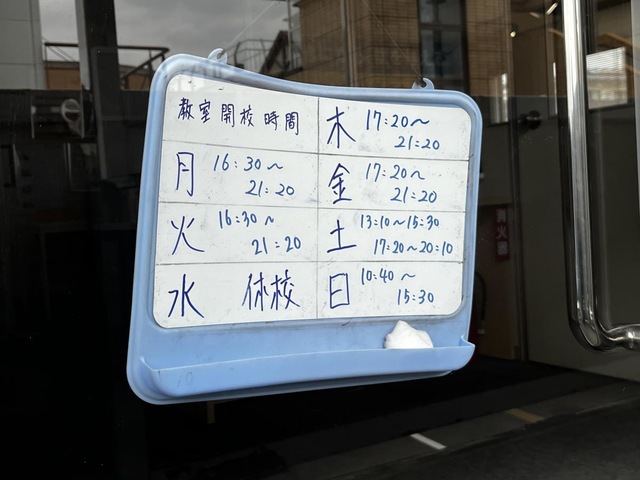 教室開校時間
月 16:30〜
21:20
火 16:30〜
21:20
水 休校
木 17:20〜
21:20
金 17:20〜
21:20
土 13:10〜15:30
17:20〜20:10
日 10:40〜
15:30
消火器